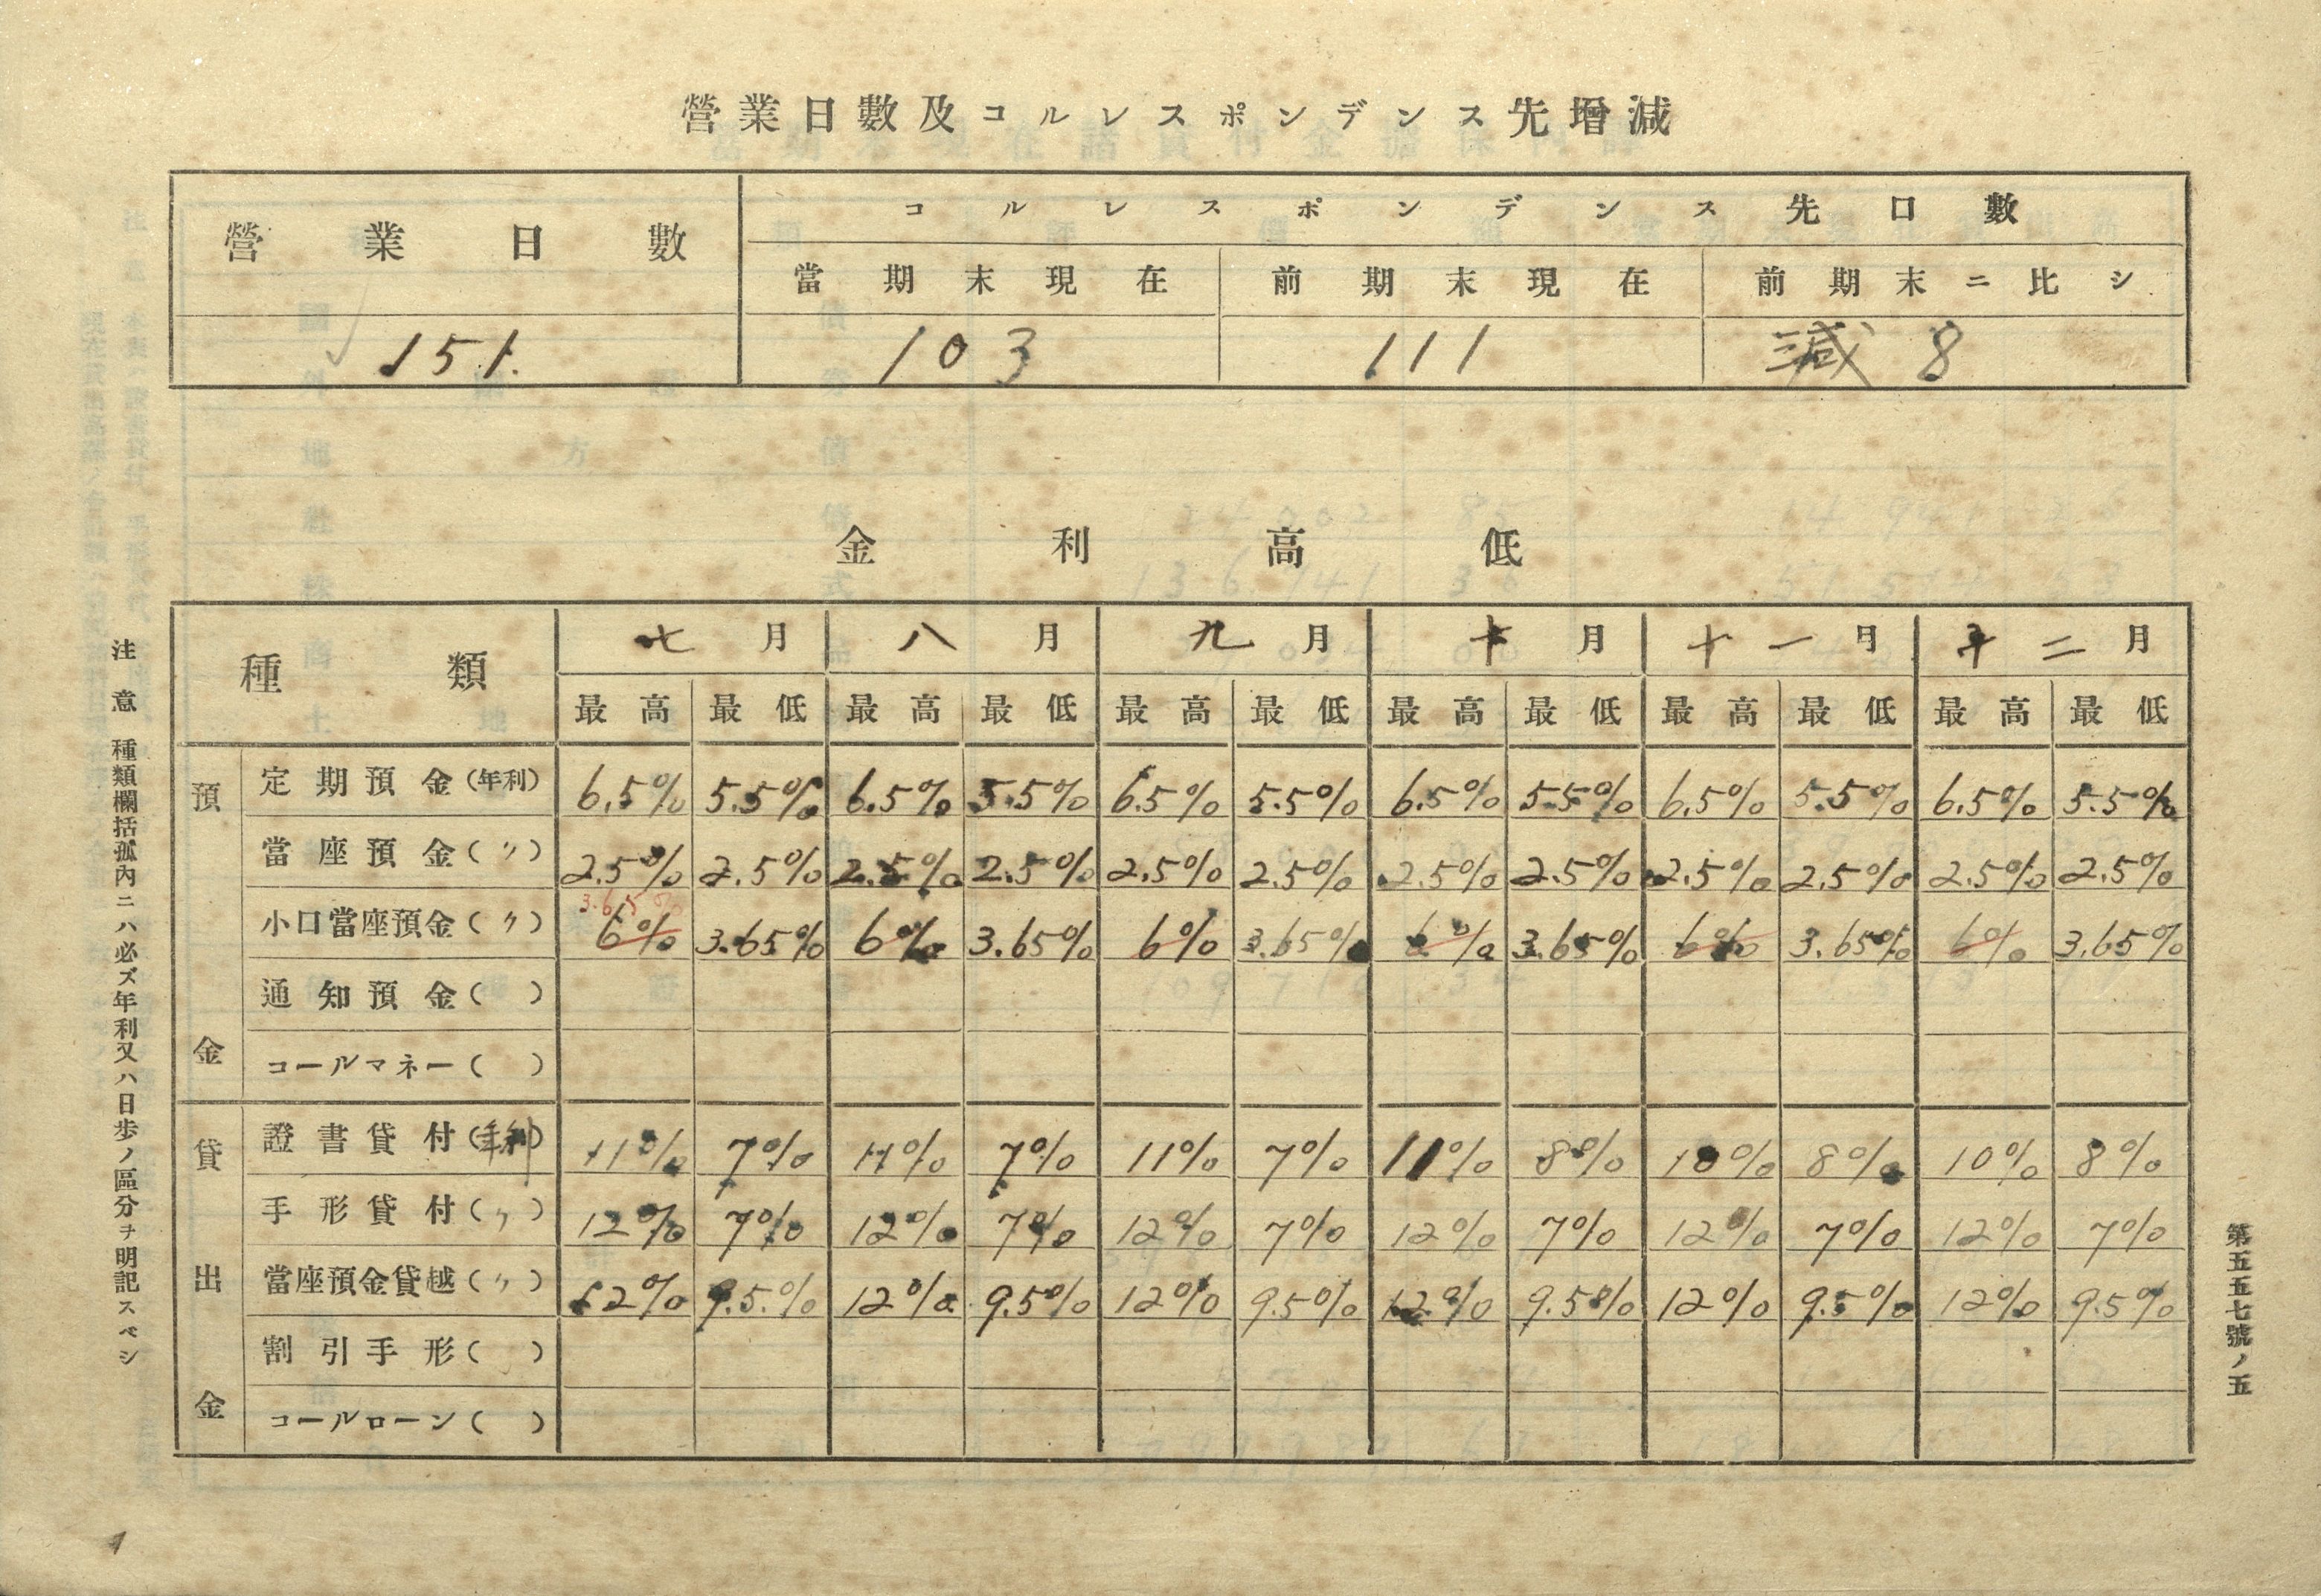 營業日數及コルレスポンデンス先增減
營業日數 コルレスポンデンス先口數
當期末現在 前期末現在 前期末ニ比シ
151. 103 111 減 8
金利高低
種類 七月 八月 九月 十月 十一月 十二月
最高 最低 最高 最低 最高 最低 最高 最低 最高 最低 最高 最低
預金
定期預金(年利) 6.5% 5.5% 6.5% 5.5% 6.5% 5.5% 6.5% 5.5% 6.5% 5.5% 6.5% 5.5%
當座預金(〃) 2.5% 2.5% 2.5% 2.5% 2.5% 2.5% 2.5% 2.5% 2.5% 2.5% 2.5% 2.5%
3.65%
小口當座預金(〃) 6% 3.65% 6% 3.65% 6% 3.65% 6% 3.65% 6% 3.65% 6% 3.65%
通知預金( )
コールマネー( )
貸出金
證書貸付(年利) 11% 7% 11% 7% 11% 7% 11% 8% 10% 8% 10% 8%
手形貸付(〃) 12% 7% 12% 7% 12% 7% 12% 7% 12% 7% 12% 7%
當座預金貸越(〃) 12% 9.5% 12% 9.5% 12% 9.5% 12% 9.5% 12% 9.5% 12% 9.5%
割引手形( )
コールローン( )
注意 種類欄括孤內ニハ必ズ年利又ハ日步ノ區分ヲ明記スベシ
第五五七號ノ五